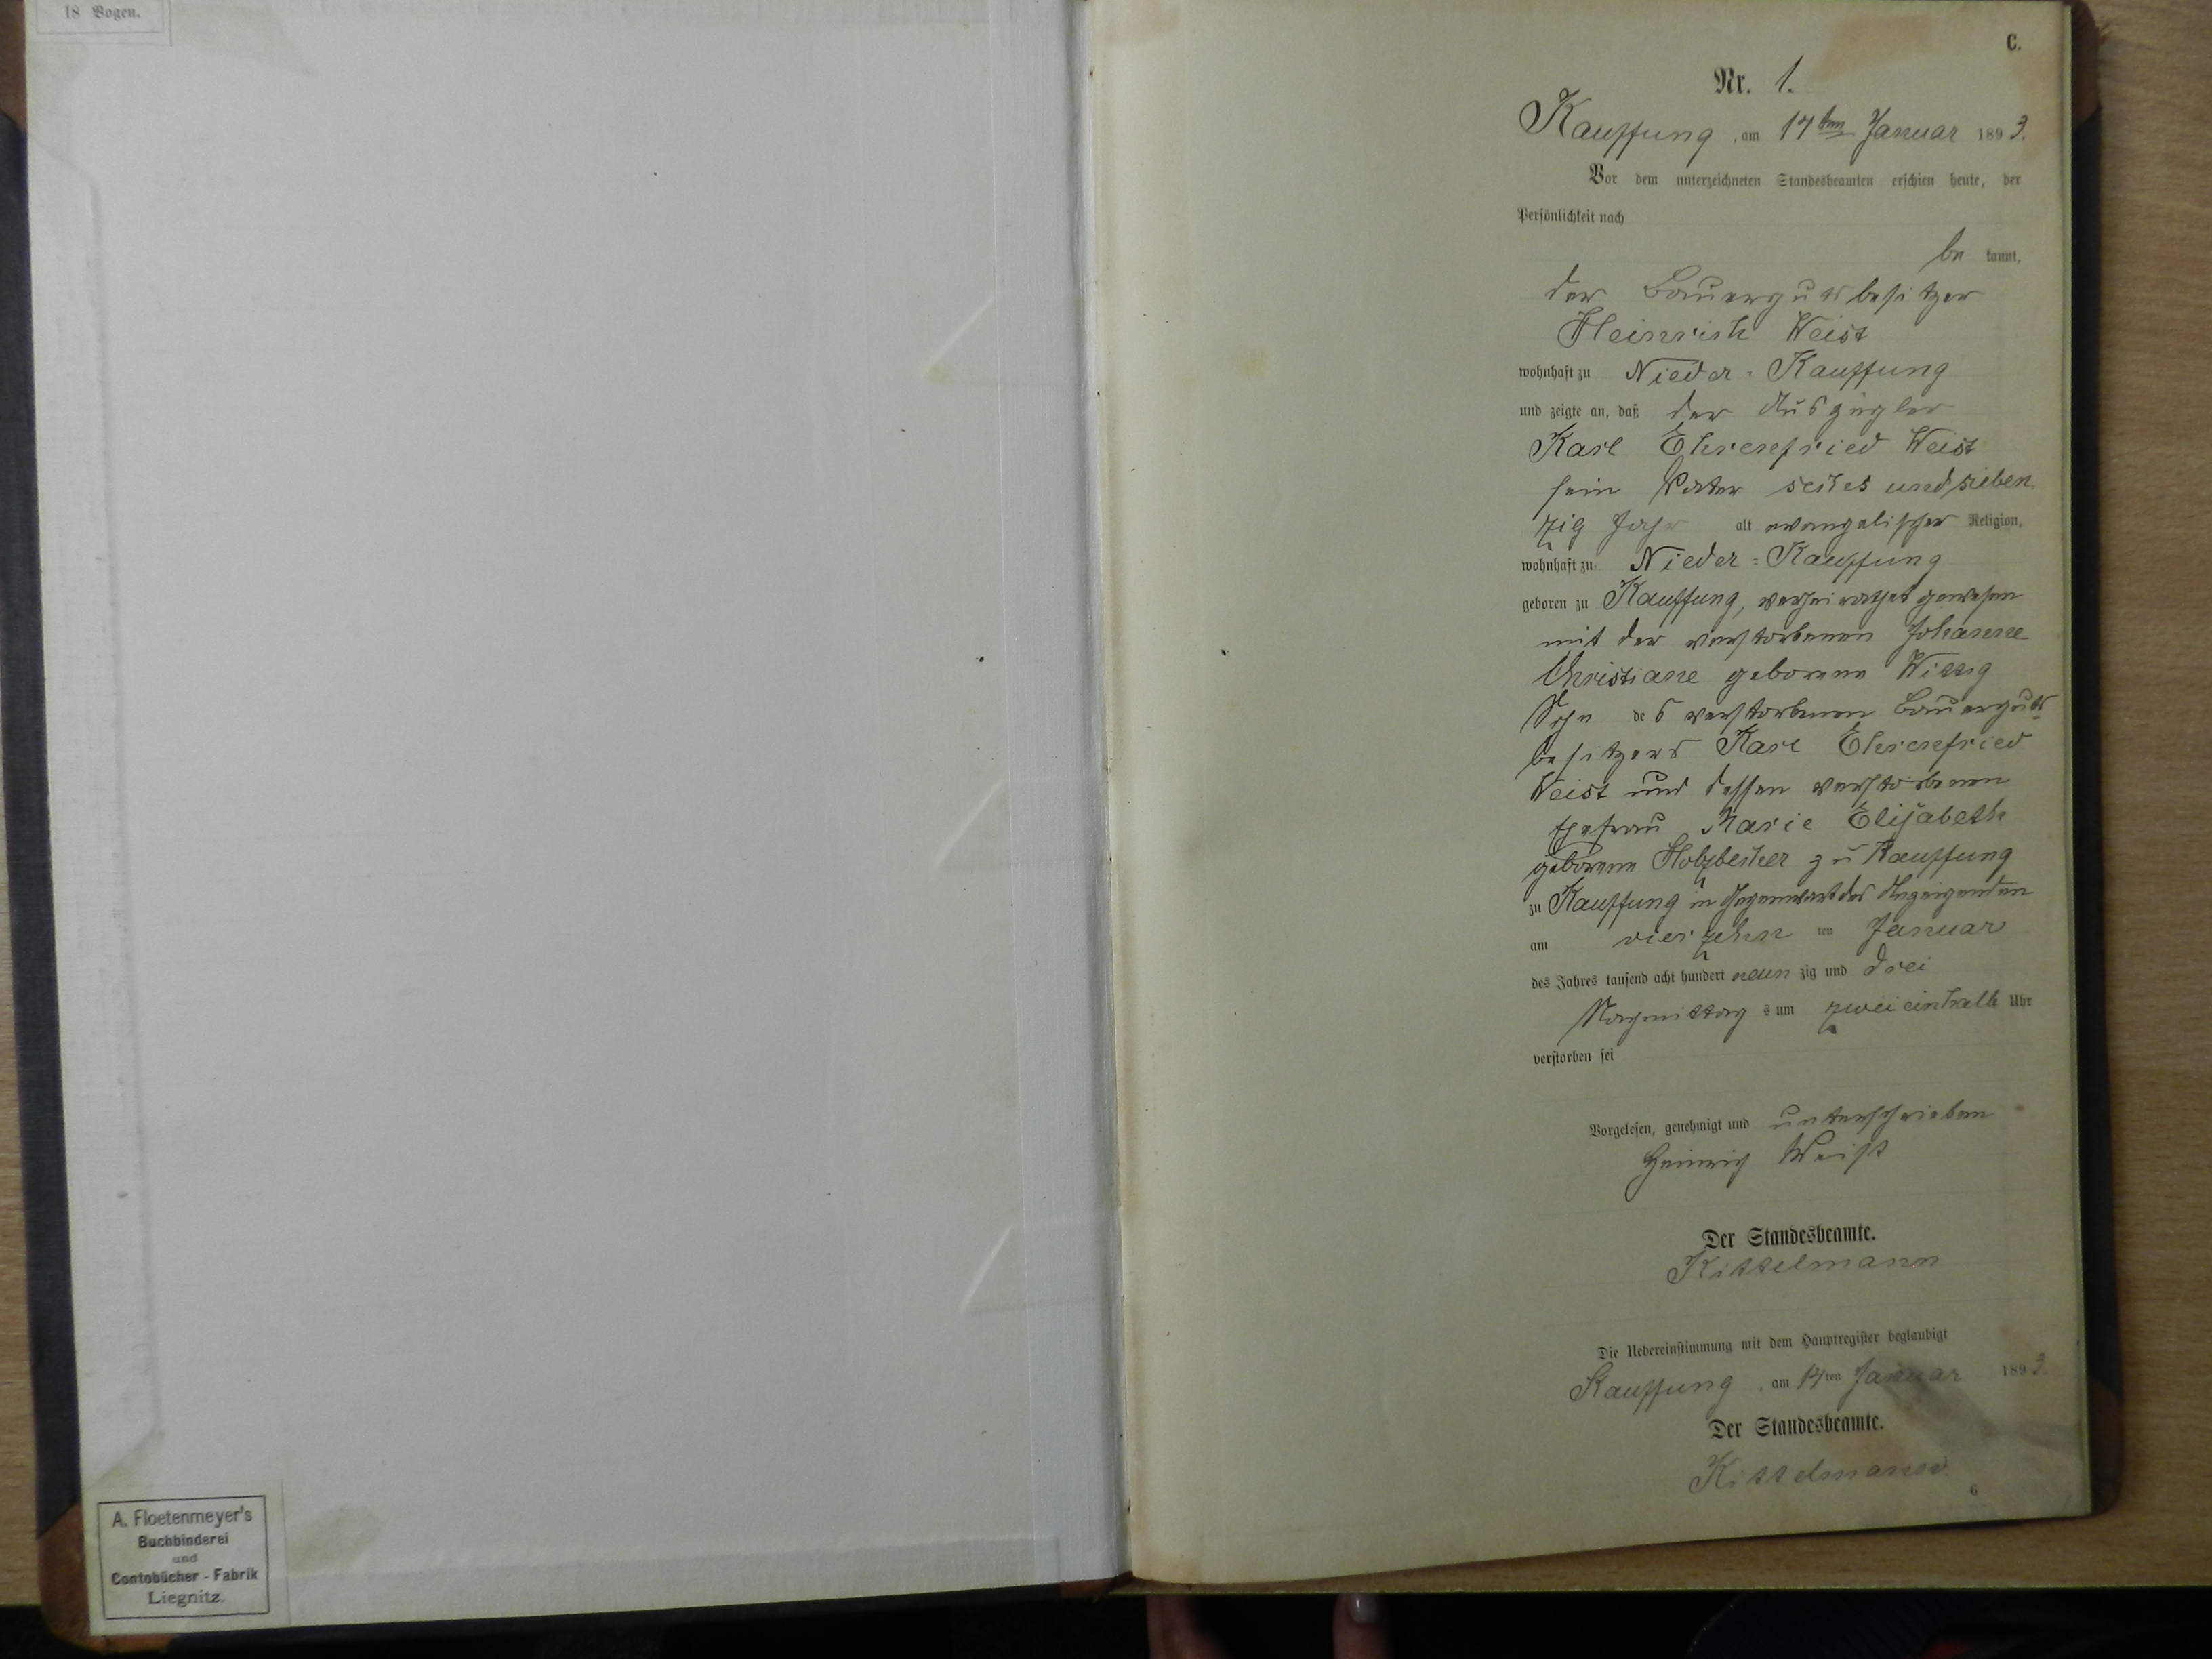 18 Bogen.
C.
Nr. 1.
Kauffung, am 14ten Januar 1893.
Vor dem unterzeichneten Standesbeamten erschien heute, der
Persönlichkeit nach
be kannt,
der Bauergutsbesitzer
Heinrich Weist
wohnhaft zu Nieder-Kauffung
und zeigte an, daß der Auszügler
Karl Ehrenfried Weist
sein Vater sechs und sieben
zig Jahr alt evangelischer Religion,
wohnhaft zu Nieder-Kauffung
geboren zu Kauffung, verheirathet gewesen
mit der verstorbenen Johanne
Christiane geborene Wittig
Sohn des verstorbenen Bauerguts
besitzers Karl Ehrenfried
Weist und dessen verstorbenen
Ehefrau Marie Elisabeth
geborene Holzbecher zu Kauffung
zu Kauffung in Gegenwart des Anzeigenden
am vierzehn ten Januar
des Jahres tausend acht hundert neun zig und drei
Nachmittag s um zwei einhalb Uhr
verstorben sei
Vorgelesen, genehmigt und unterschrieben
Heinrich Weist
Der Standesbeamte.
Kittelmann
Die Uebereinstimmung mit dem Hauptregister beglaubigt
Kauffung, am 14ten Januar 1893.
Der Standesbeamte.
Kittelmann.
6
A. Floetenmeyer's
Buchbinderei
und
Contobücher - Fabrik
Liegnitz.